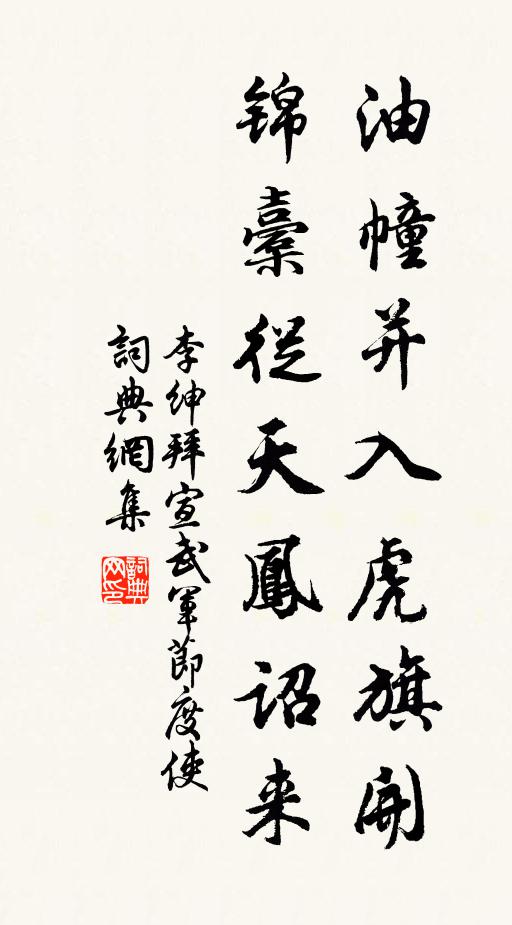 油幢并入虎旗開
錦櫜從天鳳詔来
李紳拜宣武軍節度使
詞典網集
詞典网印